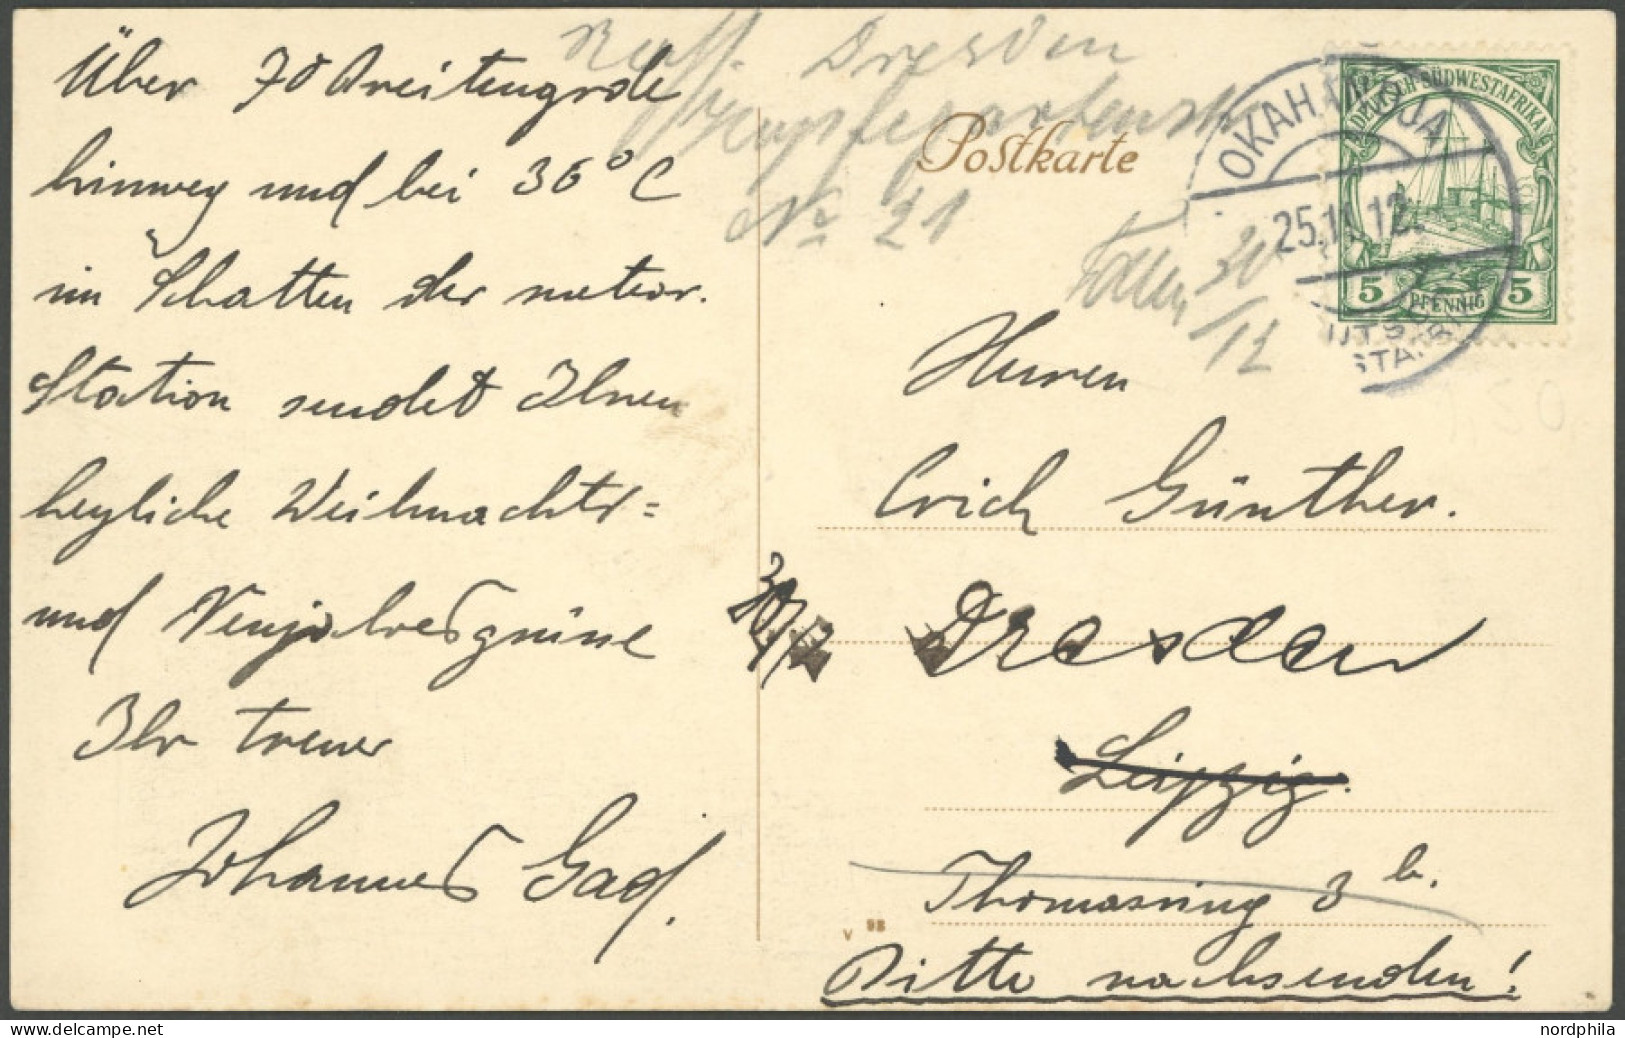 Über 70 Breitengrade
hinweg und bei 36° C
im Schatten der meteor.
Station sendet Ihnen
herzliche Weihnachts=
und Neujahrsgrüsse
Ihr treuer
Johannes Gad.
Dresden
No 21
30
/12
Postkarte
OKAHANDJA
25.11.12.
DEUTSCH-SÜDWESTAFRIKA
5 PFENNIG 5
Herren
Erich Günther.
30/12
Dresden
Leipzig.
Thomasring 3 b.
V 98
Bitte nachsenden!
nordphila